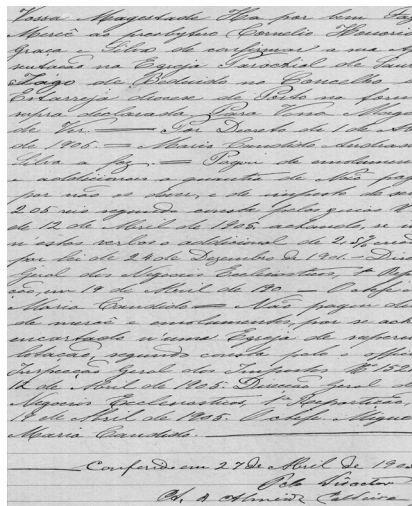 Vossa Magestade Ha por bem Faz
Mercê ao presbytero Cornelio Honorio
Graça e Silva de confirmar a sua A
na Egreja Parochial de San
Tiago de Beduido no Concelho
Estarreja diocese do Porto na forma
supra declarada. Para Vossa Mage
de Ver. = Por Decreto de 1 de A
de 1905. = Mario Candido
a fez. = Pagou de emolumen
e addicionaes a quantia de Não pag
por não os dever, e de imposto de sel
205 reis segundo consta pelos
de 12 de Abril de 1905, achando-se
n'estas verbas o addicional de 2,5%
por lei de 24 de Dezembro de 1901. Dire
Geral dos Negocios Ecclesiasticos, 1ª Rep
ção, em 19 de Abril de 190 — O chefe
Maria Candido = Não pagou di
de mercê e emolumentos, por se ach
encartado n'uma Egreja de superior
lotação, segundo consta pelo officio
Inspecção Geral dos Impostos Nº 152
12 de Abril de 1905. Direcção Geral d
Negocios Ecclesiasticos, 1ª Repartição,
19 de Abril de 1905. O chefe Miguel
Maria Candido.
Conferido em 27 de Abril de 190
Pelo Director
A. A Almeida